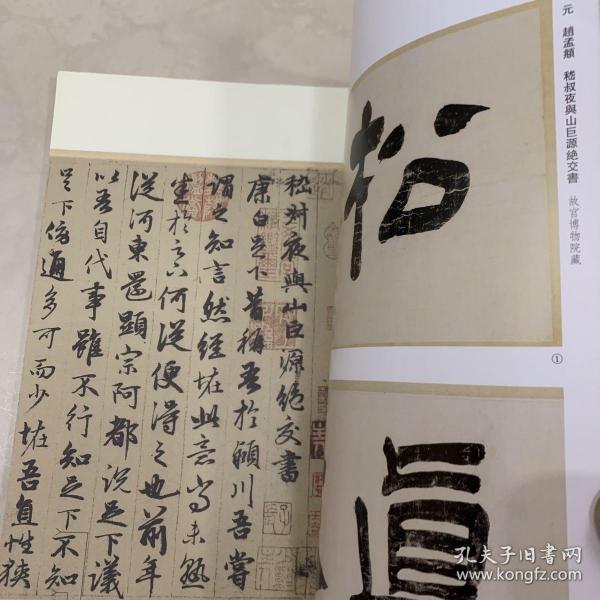 元 趙孟頫 嵇叔夜與山巨源絕交書 故宮博物院藏
松
①
眞
嵇叔夜與山巨源絕交書
康白足下昔稱吾於潁川吾嘗
謂之知言然經怪此意尚未熟
悉於足下何從便得之也前年
從河東還顯宗阿都說足下議
以吾自代事雖不行知足下不知
足下傍通多可而少怪吾直性狹
孔夫子旧书网
www.kongfz.com